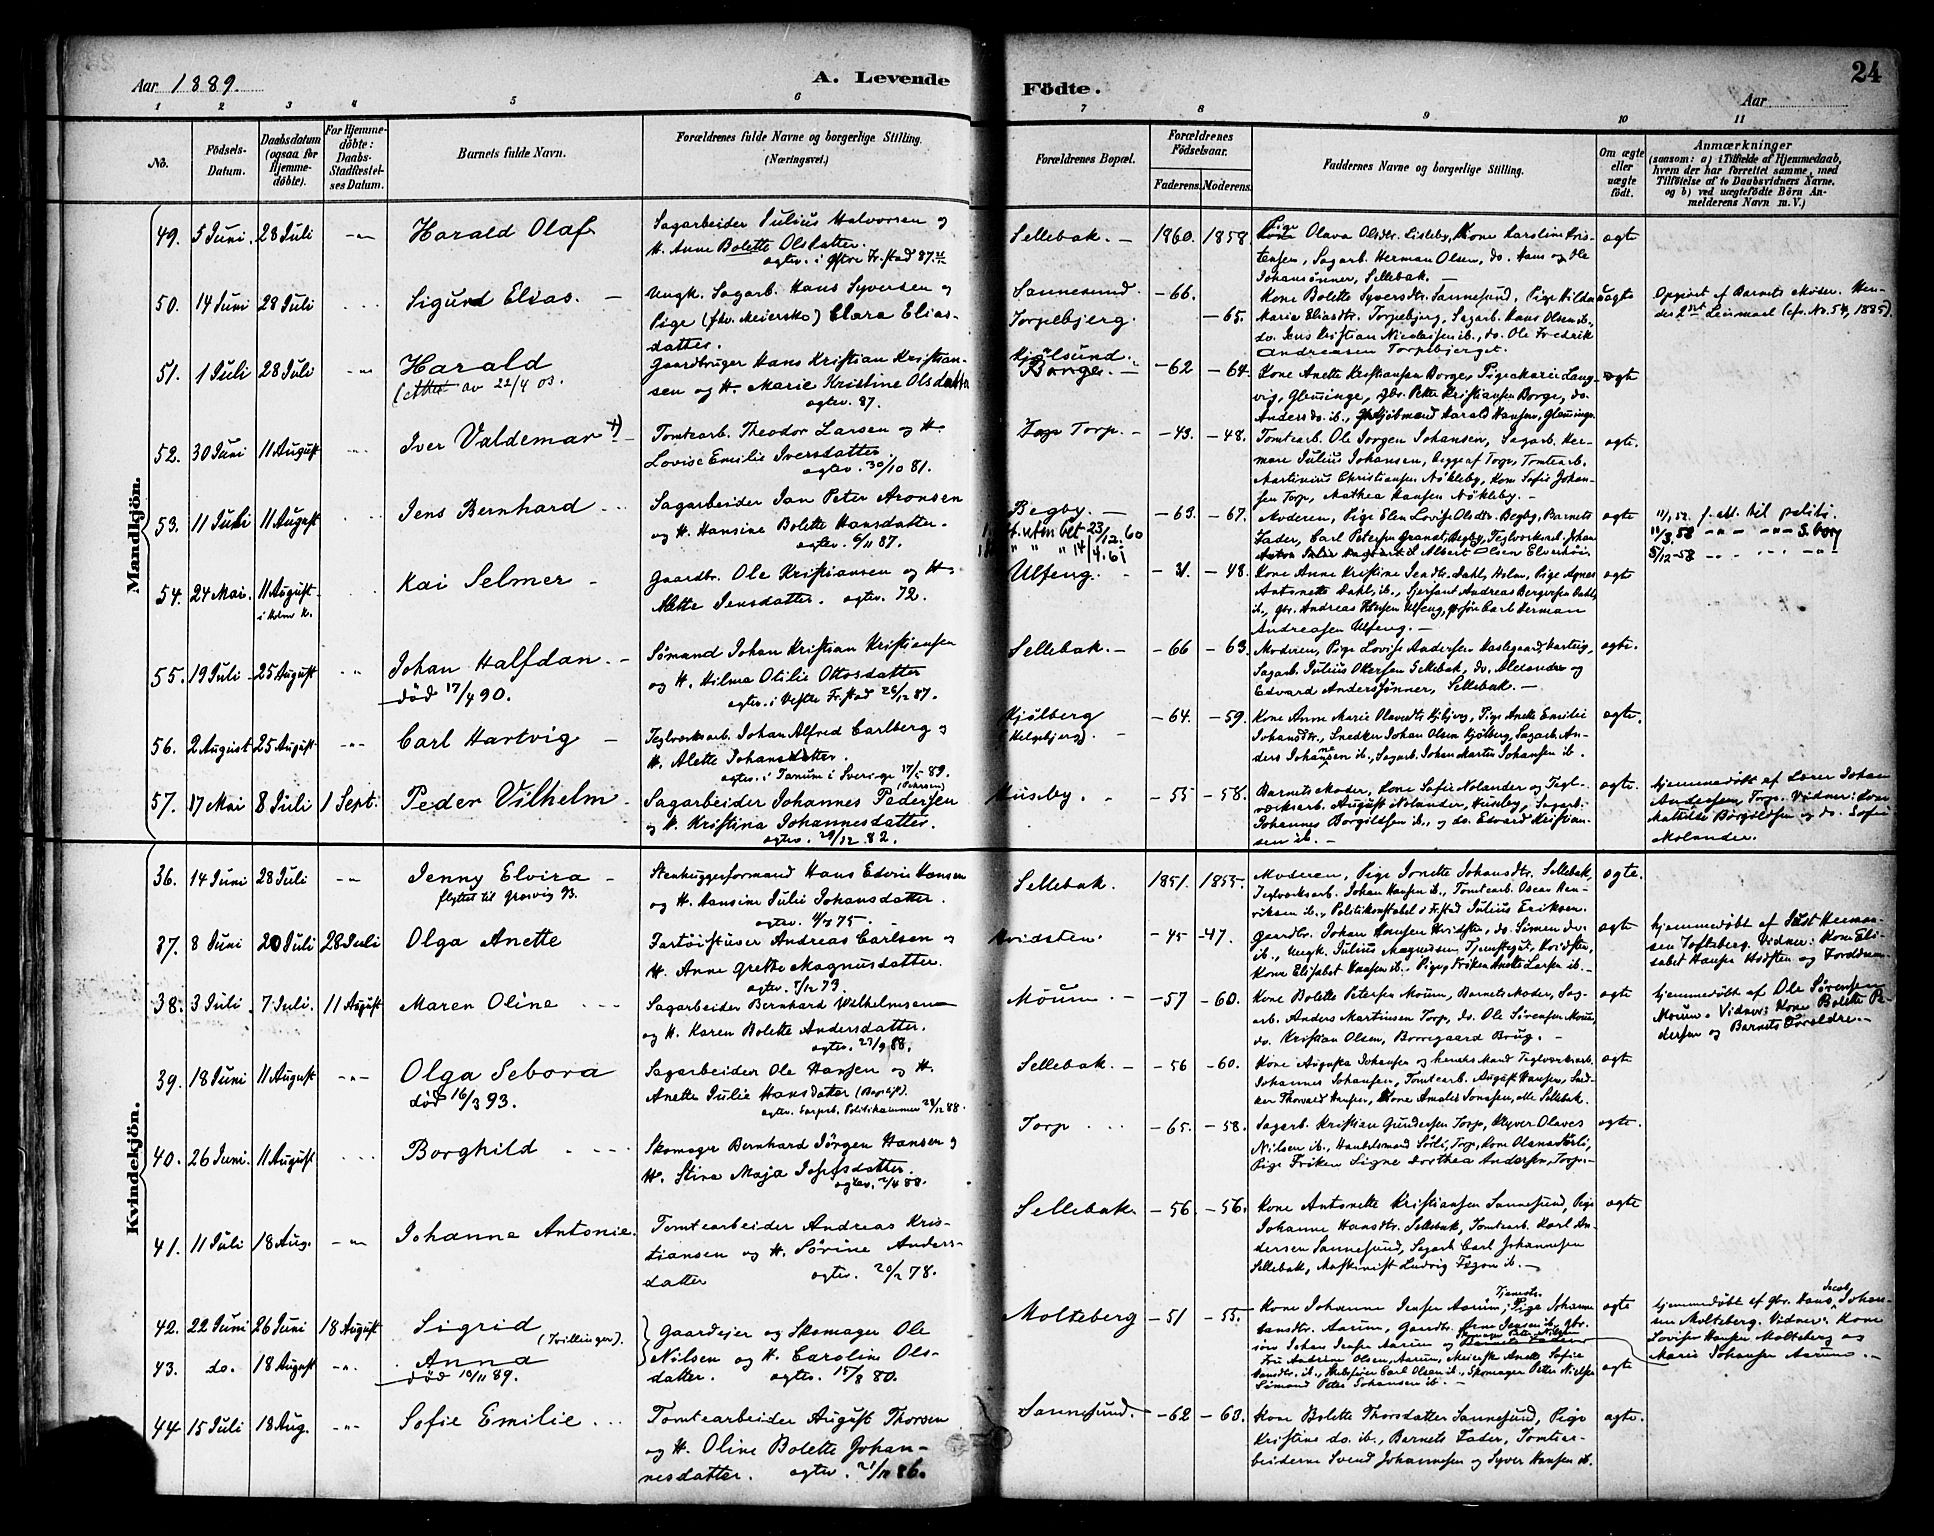 Aar 1889.
A. Levende
Födte.
24
Aar
1 2 3 4 5 6 7 8 9 10 11
No.
Födsels-Datum.
Daabsdatum (ogsaa for Hjemmedöbte).
For Hjemmedöbte: Daabs-Stadfæstelses Datum.
Barnets fulde Navn.
Forældrenes fulde Navne og borgerlige Stilling. (Næringsvei.)
Forældrenes Bopæl.
Forældrenes Födselsaar.
Faderens. Moderens.
Faddernes Navne og borgerlige Stilling.
Om ægte eller uægte födt.
Anmærkninger
(saasom: a) i Tilfælde af Hjemmedaab, hvem der har forrettet samme, med Tilföielse af to Daabsvidners Navne, og b) ved uægtefödte Börn Anmelderens Navn m.V.)
Mandkjön.
49. 5 Juni. 28 Juli -"- Harald Olaf
Sagarbeider Julius Halvorsen og
H. Anne Bolette Olsdatter.
Sellebak. - 1860. 1858.
Pige Olava Olsdtr. Lisleby, Kone Karoline Kristensen, Sagarb. Herman Olsen, do. Hans og Ole
Johansønner, Sellebak. -
ægte
50. 14 Juni 28 Juli Sigurd Elias. -
Ungk. Sagarb. Hans Syversen og
Pige (fhv. Meierske) Clara Eliasdatter.
Sannesund. -66.
Torpebjerg. -65.
Kone Bolette Syversdtr. Sannesund, Pige Hilda
Marie Eliasdtr. Torpebjerg, Sagarb. Hans Olsen ib.,
do. Jens Kristian Nicolaisen ib., do. Ole Fredrik
Andreasen Torpebjerget.
uægte
Opgivet af Barnets Moder. Hendes 2det Leiermaal (cfr. No. 54, 1885).
51. 1 Juli 28 Juli -"- Harald
av 22/4 03.
Gaardbruger Hans Kristian Kristiansen og H. Marie Kristine Olsdatter
ægtev. 87.
Kjølsund.
Borge. - -62 -64.
Kone Anette Kristiansen Borge, Pige Marie Langvig, Glemminge, Gbr. Petter Kristiansen Borge, do.
Anders do. ib., Kjøbmand Harald Hansen, Glemminge.
ægte
52. 30 Juni 11 August Iver Valdemar +)
Tomtearb. Theodor Larsen og H.
Lovise Emilie Iversdatter.
ægtev. 30/10 81.
Torp. - -43. -48.
Tomtearb. Ole Jørgen Johansen, Sagarb. Hermann Julius Johansen, begge af Torp, Tomtearb.
Martinius Christiansen Nøkleby, Kone Sofie Johansen Torp, Mathea Hansen Nøkleby. -
ægte.
53. 11 Juli 11 August Jens Bernhard
Sagarbeider Jan Peter Aronsen
og H. Hansine Bolette Hansdatter.
ægtev. 6/11 87.
Begby. - -63. -67.
Moderen, Pige Elen Lovise Olsdtr. Begby, Barnets
Fader, Carl Petersen Granat, Begby, Teglværksarb. Johan
Albert Olsen Elverhøi
ægte
11/1.52. f. att. til politi.
11/3.58 -"- S.borg
5/12-58 -"-
54. 24 Mai. 11 August. i Holms K. Kai Selmer -
Gaardbr. Ole Kristiansen og H.
Alette Jensdatter. ægtev. 72.
Ulfeng. - -31 -48.
Kone Anne Kristine Jensdtr. Dahl, Holm, Pige Agnes
Antonette Dahl, ib., Andreas Bergersen Dahl,
ib., gbr. Andreas Petersen Ulfeng, Carl Herman
Andreasen Ulfeng. -
ægte
55. 19 Juli 25 August -"- Johan Halfdan. -
død 17/4 90.
Sømand Johan Kristian Kristiansen
og H. Hilma Otilie Ottosdatter
ægtev. i Vestre Fr.stad 26/12 87.
Sellebak. - -66 -63.
Moderen, Pige Lovise Andersen Haslegaard, Varteig,
Sagarb. Julius Ottersen Sellebak, do. Alexander og
Edvard Anderssønner, Sellebak. -
ægte.
56. 2 August 25 August -"- Carl Hartvig -
Teglværksarb. Johan Alfred Carlberg og
H. Alette Johansdatter.
ægtev. i Tanum i Sverige 17/5 89.
Kjølberg - -64. -59.
Kone Anne Marie Olavesdtr. Pige Anette Emilie
Johansdtr., Snedker Johan Olsen Kjølberg, Sagarb. Anders Johannesen ib., Sagarb. Johan Martin Johansen ib.
ægte.
57. 17 Mai 8 Juli 1 Sept. Peder Vilhelm -
Sagarbeider Johannes Pedersen
og H. Kristina Johannesdatter.
ægtev. 29/12 82.
Huseby. -55 -58.
Barnets Moder, Kone Sofie Nolander og Teglværksarb. August Nolander, Huseby, Sagarb.
Johannes Borgildsen ib., og do. Edvard Kristiansen ib. -
ægte.
hjemmedøbt af Lærer Johan
Andersen, Torp. Vidner: Kone
Mathilde Borgildsen og do. Sofie
Nolander.
Kvindekjön.
36. 14 Juni 28 Juli -"- Jenny Elvira -
flyttet til Græsvig 93.
Stenhuggerformand Hans Edvin Hansen
og H. Hansine Julie Johansdatter.
Sellebak. 1851. 1855.
Moderen, Pige Jonette Johansdtr. Sellebak,
Teglværksarb. Johan Hansen ib., Tomtearb. Oscar Henriksen ib., Politikonstabel i Fr.stad Julius Eriksen.
ægte.
37. 8 Juni 20 Juli 28 Juli Olga Anette
Fartøistuser Andreas Carlsen og
H. Anne Grethe Magnusdatter.
ægtev. 7/12 73.
Hvidsten. -45 -47.
Gaardbr. Johan Hansen Hvidsten, do. Simen do.
ib., Ungk. Julius Magnussen Hvidsten,
Kone Elisabet Hansen ib., Pige Frøken Anette Larsen ib. -
ægte
hjemmedøbt af Just Hermansen Tofteberg. Vidner: Kone Elisabet Hansen Hvidsten og
38. 3 Juli. 7 Juli. 11 August Maren Oline
Sagarbeider Bernhard Wilhelmsen
og H. Karen Bolette Andersdatter.
ægtev. 27/9 88.
Moum. - -57 -60.
Kone Bolette Petersen Moum, Barnets Moder, Sagarb. Anders Martinsen Torp, do. Ole Sørensen Moum,
do. Kristian Olsen, Borregaard Brug. -
ægte
hjemmedøbt af Ole Sørensen
Moum. Vidner: Kone Bolette Pedersen og Barnets Forældre. -
39. 18 Juni 11 August -"- Olga Sebora
død 16/3 93.
Sagarbeider Ole Hansen og H.
Anette Julie Hansdatter
Sellebak. - -56 -60.
Kone Augusta Johansen og hendes Mand Teglværksarb.
Johannes Johansen, Tomtearb. August Hansen, Snedker Thorvald Hansen, Kone Amalie Jonassen, alle Sellebak.
ægte
40. 26 Juni. 11 August Borghild
Skomager Bernhard Jørgen Hansen og
H. Stina Maja Josefsdatter.
ægtev. 2/4 88.
Torp -65. -58.
Sagarb. Kristian Gundersen Torp, Olaves
Nilsen ib., Handelsmand Sørli, Torp, Kone Olena Sørli,
Pige Frøken Signe Dorthea Andersen, Torp. -
ægte.
41. 11 Juli 18 Aug. -"- Johanne Antonie.
Tomtearbeider Andreas Kristiansen og H. Sørine Andersdatter ægtev. 20/2 78.
Sellebak. -56. -56.
Kone Antonette Kristiansen Sannesund, Pige
Johanne Hansdtr. Sellebak, Tomtearb. Karl Andersen Sannesund, Sagarb. Carl Johannesen
Sellebak, Maskinist Ludvig ib. -
ægte
42. 22 Juni 26 Juni 18 August Sigrid
(Tvillinger).
43. do. 18 August -"- Anna
død 10/11 89.
Gaardejer og Skomager Ole
Nilsen og H. Caroline Olsdatter. ægtev. 15/8 80.
Molteberg -51 -55.
Kone Johanne Jensen Aarum, Pige Johanne
Hansdtr. Aarum, Gaardbr. Arne Jensen ib., Gbr.
søn Johan Jensen Aarum og
Fru Andrine Olsen, Aarum, Meierske Anette Sofie
Carl Olsen ib., Skomager Petter Nilsen
Sømand Peter Johansen ib. -
ægte
ægte
hjemmedøbt af gbr. Hans Jacob Johansen Molteberg. Vidner: Kone
Lovise Hansen Molteberg og
Marie Johansen Aarum. -
44 15 Juli 18 Aug. -"- Sofie Emilie
Tomtearbeider August Thorsen
og H. Oline Bolette Johannesdatter. ægtev. 21/11 86.
Sannesund. -62 -63.
Kone Bolette Thorsdatter Sannesund, Pige
Kristine do. ib., Barnets Fader, Tomtearbeiderne Svend Johannesen og Syver Hansen ib.
ægte.